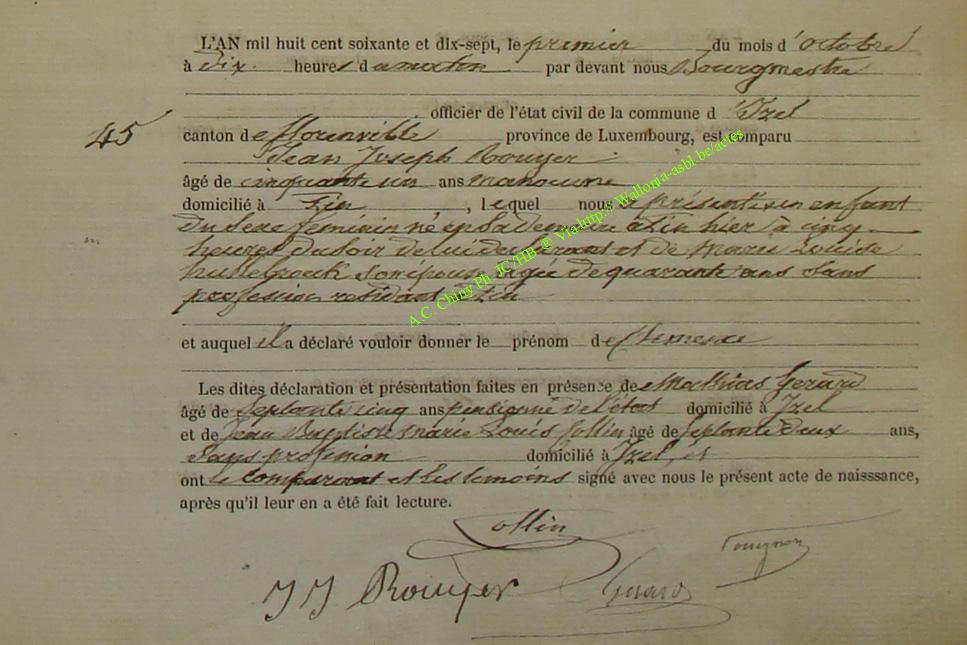 L'AN mil huit cent soixante et dix-sept, le premier du mois d'octobre
à dix heures du matin par devant nous Bourgmestre
officier de l'état civil de la commune d'Izel
45
canton de Florenville province de Luxembourg, est comparu
Jean Joseph Rouyer
âgé de cinquante un ans manoeuvre
domicilié à Pin, lequel nous a présenté un enfant
du sexe féminin né en sa demeure à Pin hier à cinq
heures du soir de lui déclarant et de Marie Louise
son épouse âgée de quarante ans sans
profession résidant à Pin
et auquel il a déclaré vouloir donner le prénom de Clemence
Les dites déclaration et présentation faites en présence de Mathias Gerard
âgé de septante cinq ans pensionné de l'état domicilié à Izel
et de Jean Baptiste Marie Louis Collin âgé de septante deux ans,
sans profession domicilié à Izel, et
ont le comparant et les temoins signé avec nous le présent acte de naisssance,
après qu'il leur en a été fait lecture.
Collin
J J Rouyer Gerard
A.C. Chiny Ph. JC/HB @ Via-http://Wallonia-asbl.be/actes